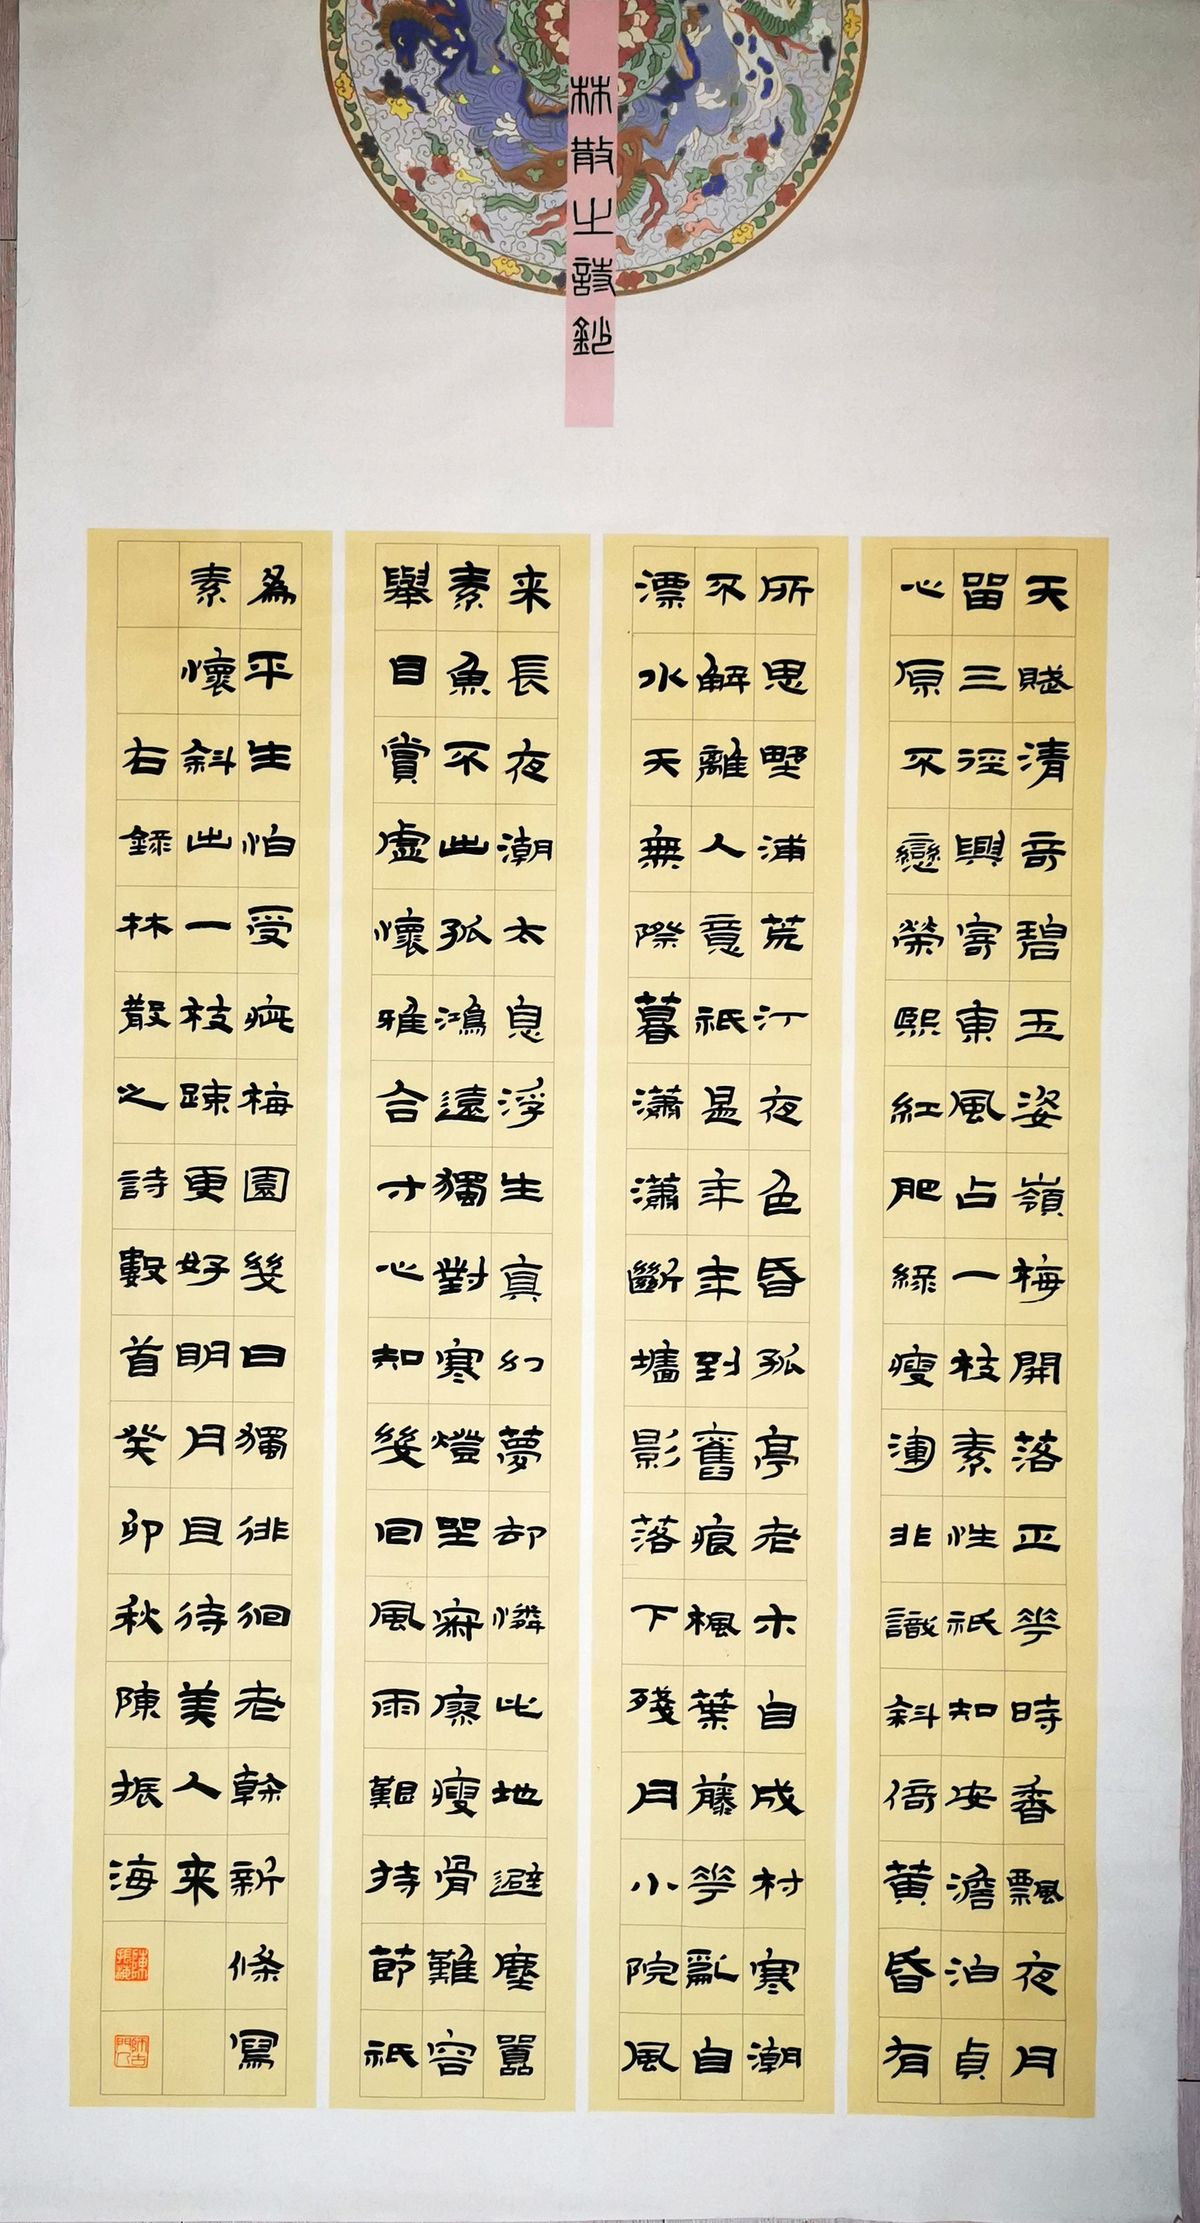 林散之詩鈔
天賤清奇碧玉姿嶺梅開落正花時香飄夜月
留三徑興寄東風占一枝素性祇知安澹泊貞
心原不戀榮熙紅肥綠瘦渾非識斜倚黃昏有
所思野浦荒汀夜色昏孤亭老木自成村寒潮
不解離人意祇是年年到舊痕楓葉藤花亂自
漂水天無際暮瀟瀟斷墻影落下殘月小院風
来長夜潮太息浮生真幻夢却憐此地避塵囂
素魚不此孤鴻遠獨對寒燈坐寂寥瘦骨難容
舉目賞虛懷雅合寸心知幾回風雨艱持節祇
為平生怕受疵梅園幾日獨徘徊老幹新條寫
素懷斜出一枝疎更好明月且待美人来
右錄林散之詩數首癸卯秋陳振海